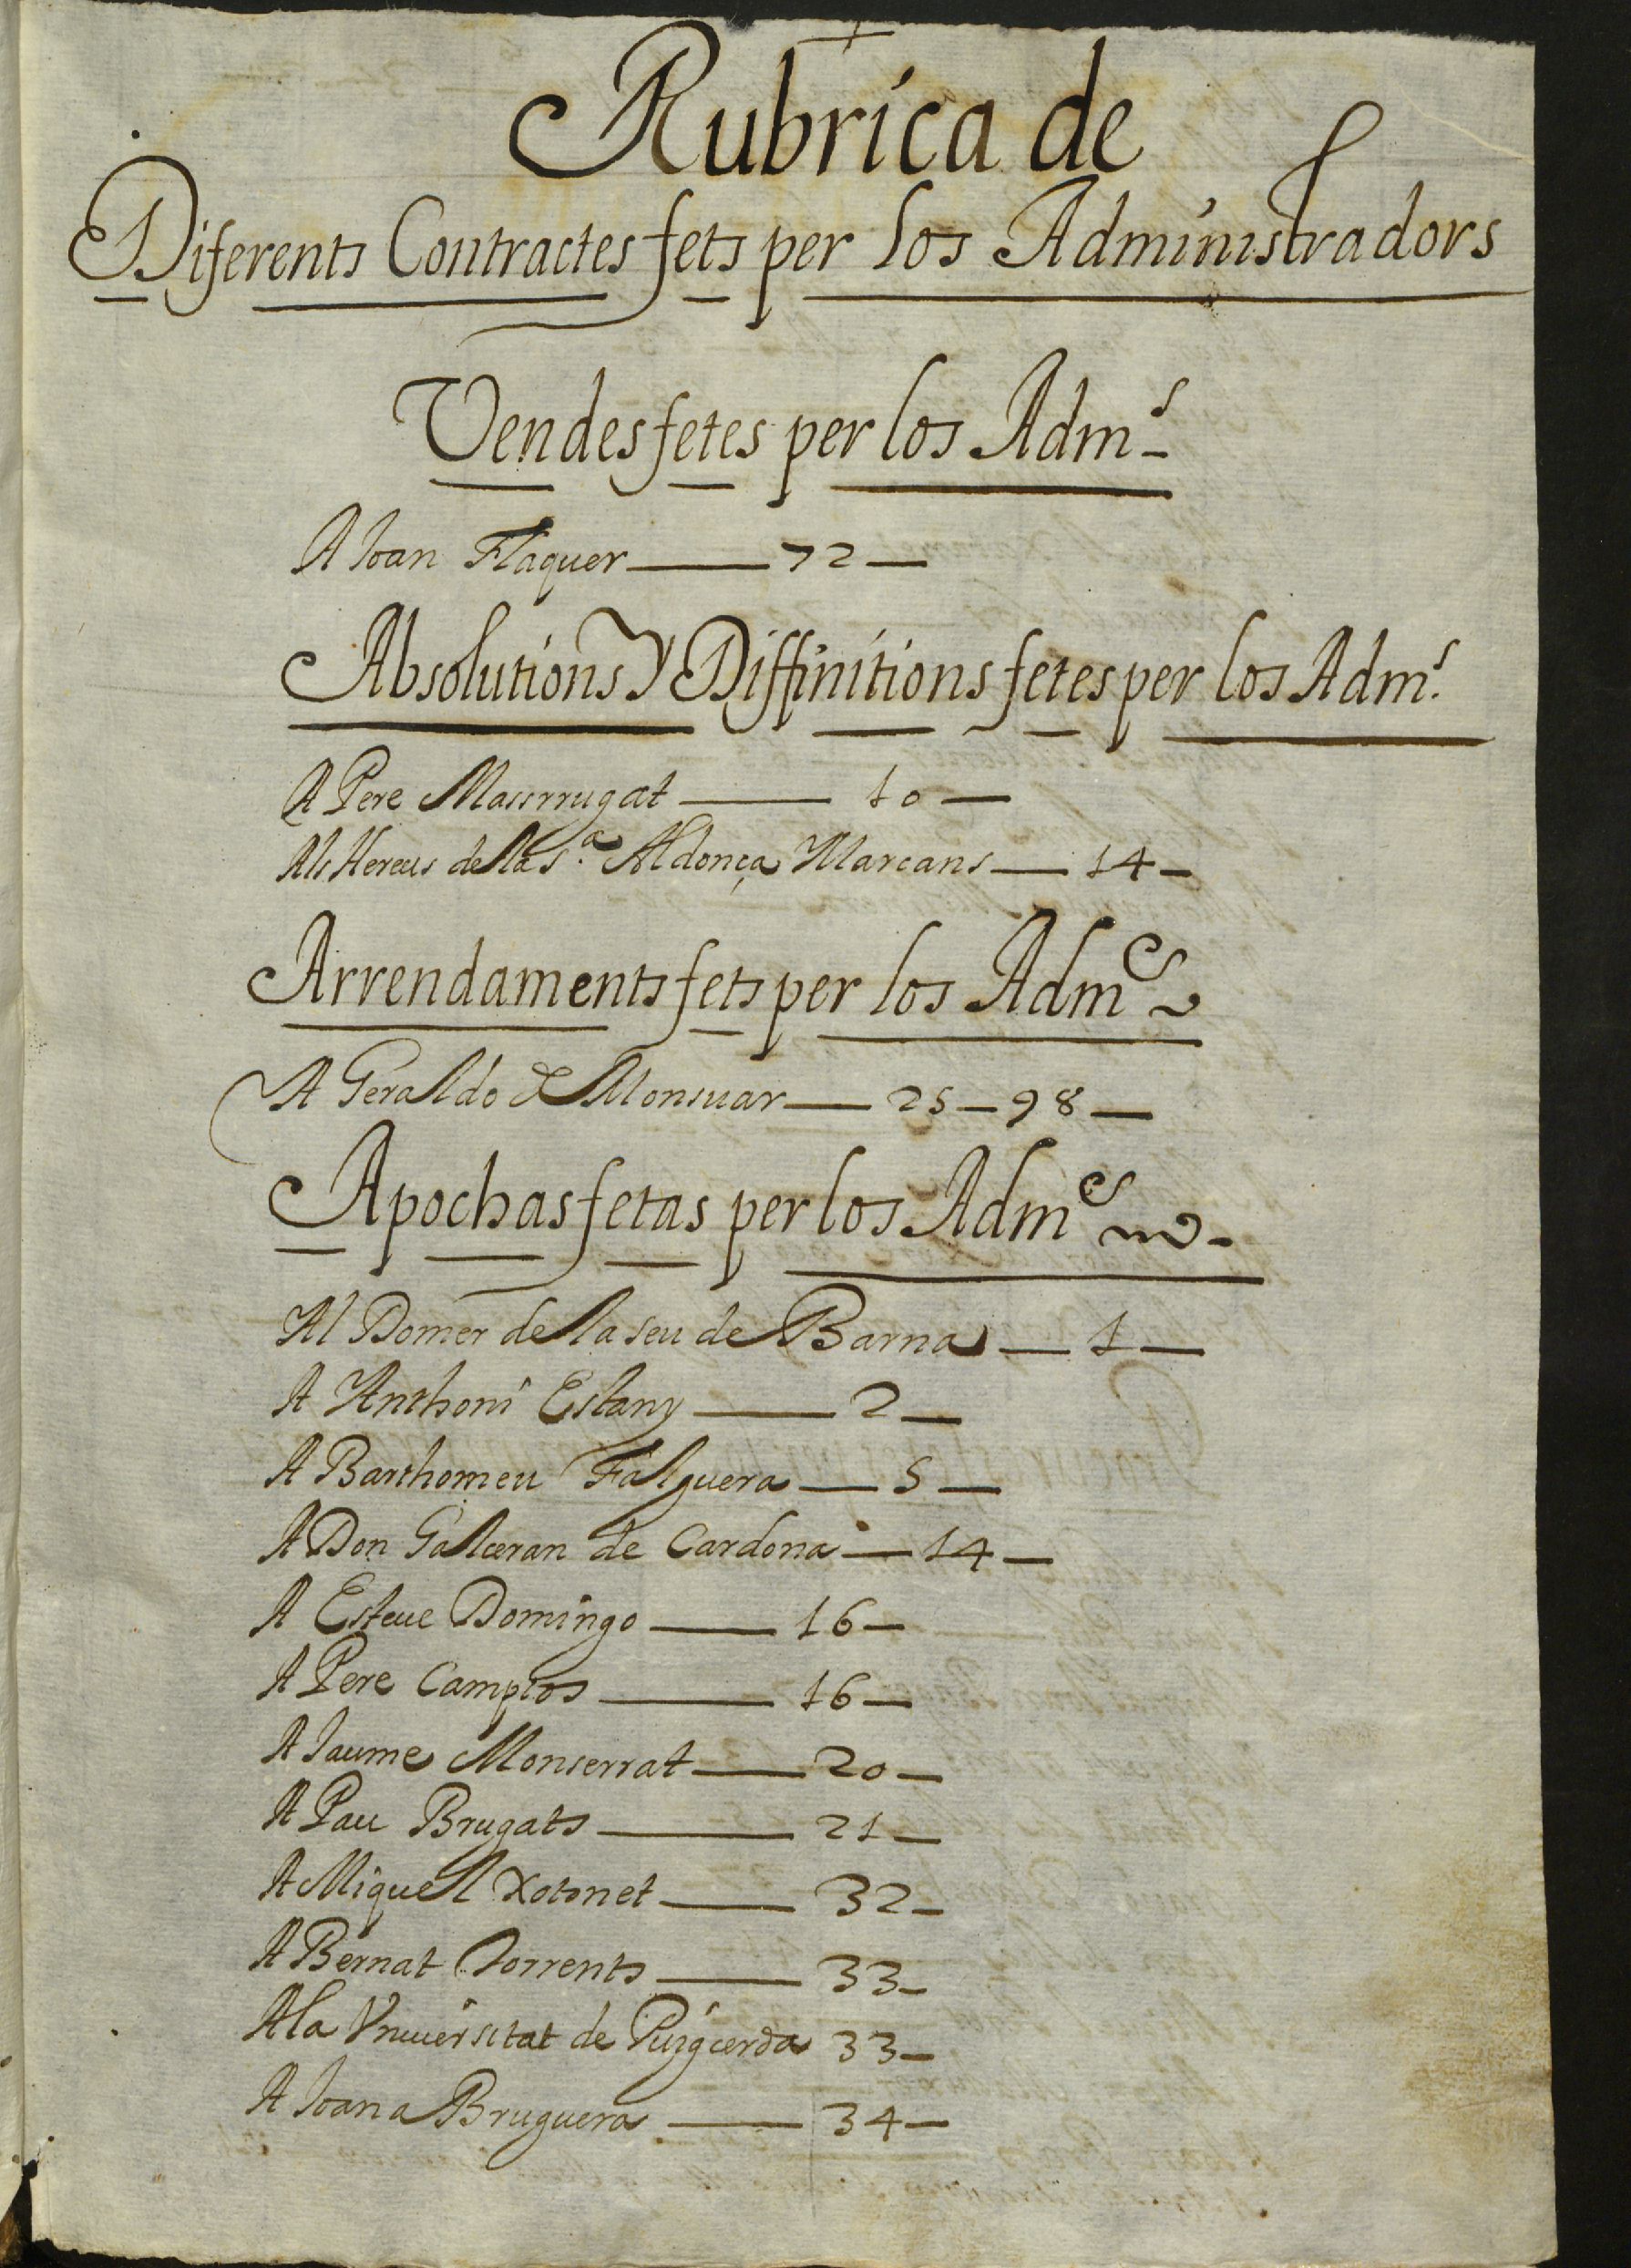 +
Rubrica de
Diferents Contractes fets per los Administradors
Vendes fetes per los Adm.s
A Joan Flaquer — 72 —
Absolutions y Diffinitions fetes per los Adm.s
A Pere Massrrugat — 10 —
Als Hereus de la S.a Aldonça Marcans — 14 —
Arrendaments fets per los Adm.es
A Geraldo de Monsuar — 25 — 98 —
Apochas fetas per los Adm.es
Al Domer de la seu de Barna — 1 —
A Anthoni Estany — 2 —
A Barthomeu Falguera — 5 —
A Don Galceran de Cardona — 14 —
A Esteue Domingo — 16 —
A Pere Campios — 16 —
A Jaume Monserrat — 20 —
A Pau Brugats — 21 —
A Miquel Xotonet — 32 —
A Bernat Torrents — 33 —
A la Vniuersitat de Puigcerda 33 —
A Joana Bruguera — 34 —